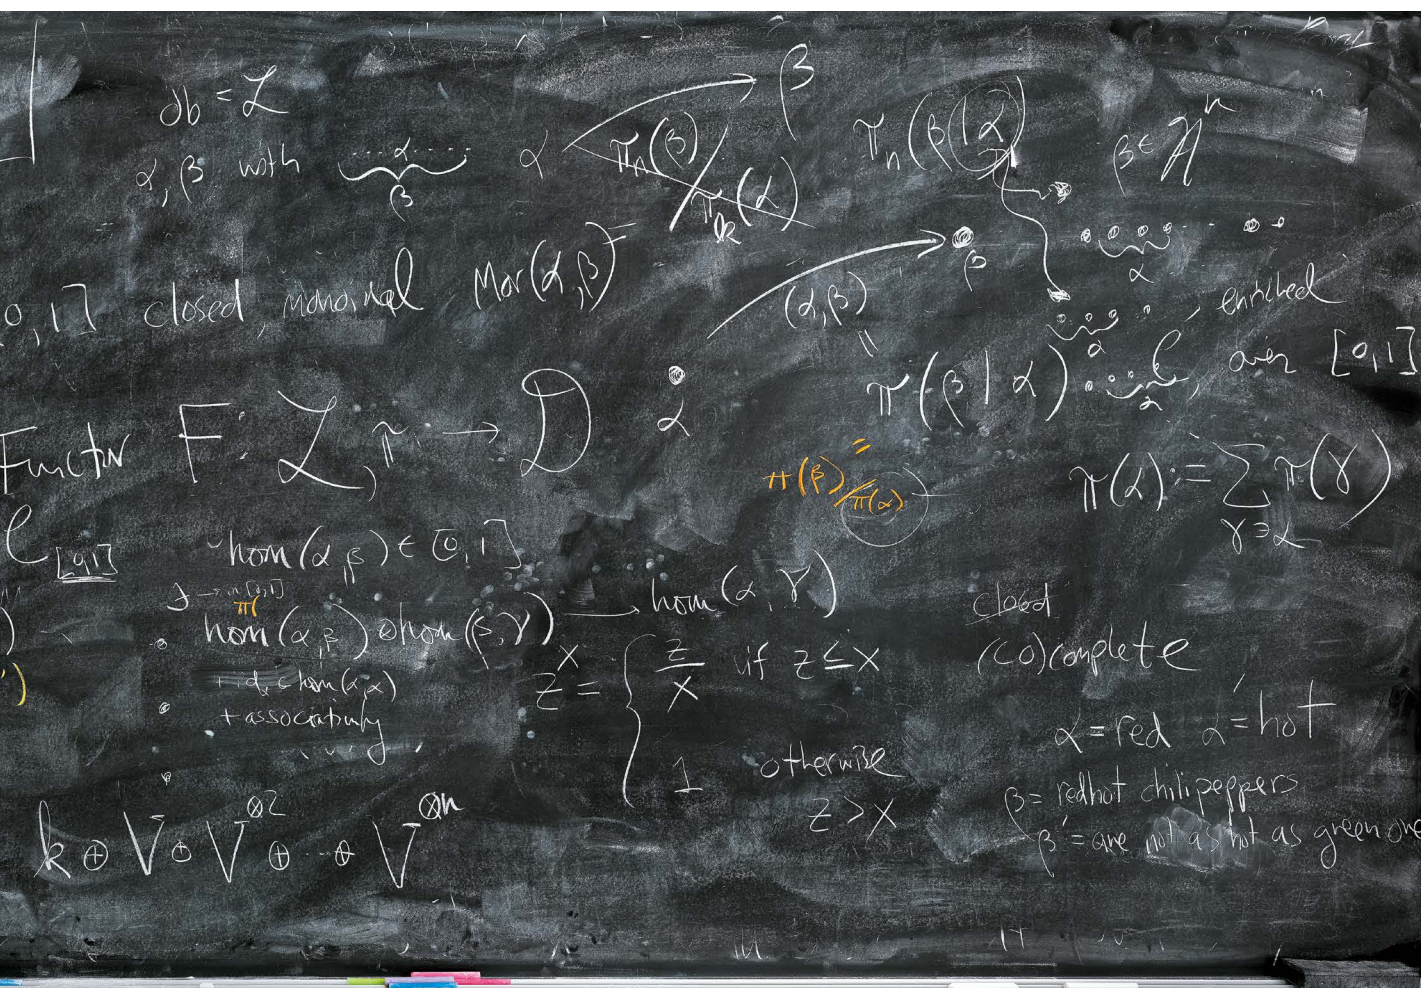 ob = ℒ
β
α, β with α β
α
πₙ(β)/πₖ(α)
πₙ(β|α)
β ∈ Aⁿ
0,1] closed, monoidal Mor(α,β) =
(α,β)
β
α
α
=
enriched
π(β|α)
C, over [0,1]
α
Functor F: ℒ, π → D
α
= π(β)/π(α)
π(α) := Σ π(γ)
γ∋α
C[0,1]
hom(α,β) ∈ [0,1]
in [0,1]
π(
hom(α,β) ⊗ hom(β,γ) → hom(α,γ)
+ associativity
X
Z = { Z/X if Z ≤ X
1 otherwise
Z > X
closed
(co)complete
α = red α' = hot
β = redhot chilipeppers
β' = are not as hot as green one
k ⊕ V ⊕ V^⊗2 ⊕ ... ⊕ V^⊗n